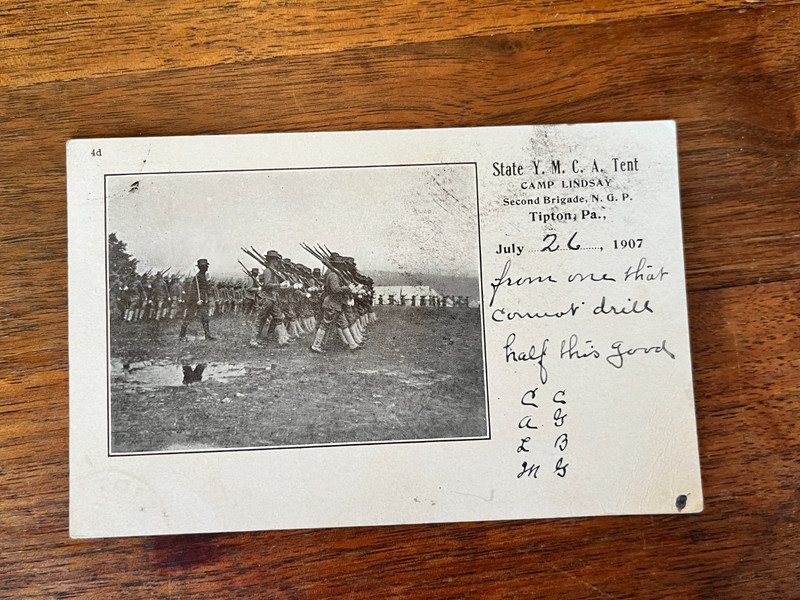 4d
State Y. M. C. A. Tent
CAMP LINDSAY
Second Brigade, N. G. P.
Tipton, Pa.,
July 26, 1907
from one that
cannot drill
half this good
C C
A G
L B
M G